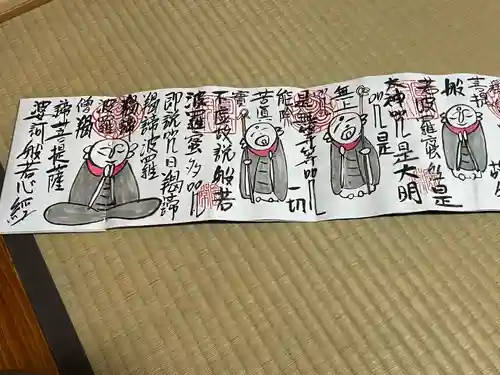 菩提
般
若波羅蜜多是
大神呪是大明
呪是
無上
是無等等呪
能除
一切
苦真
実
不虚故説般若
波羅蜜多呪
即説呪曰羯諦
羯諦波羅
羯諦
波羅
僧羯
諦菩提薩
婆訶般若心経